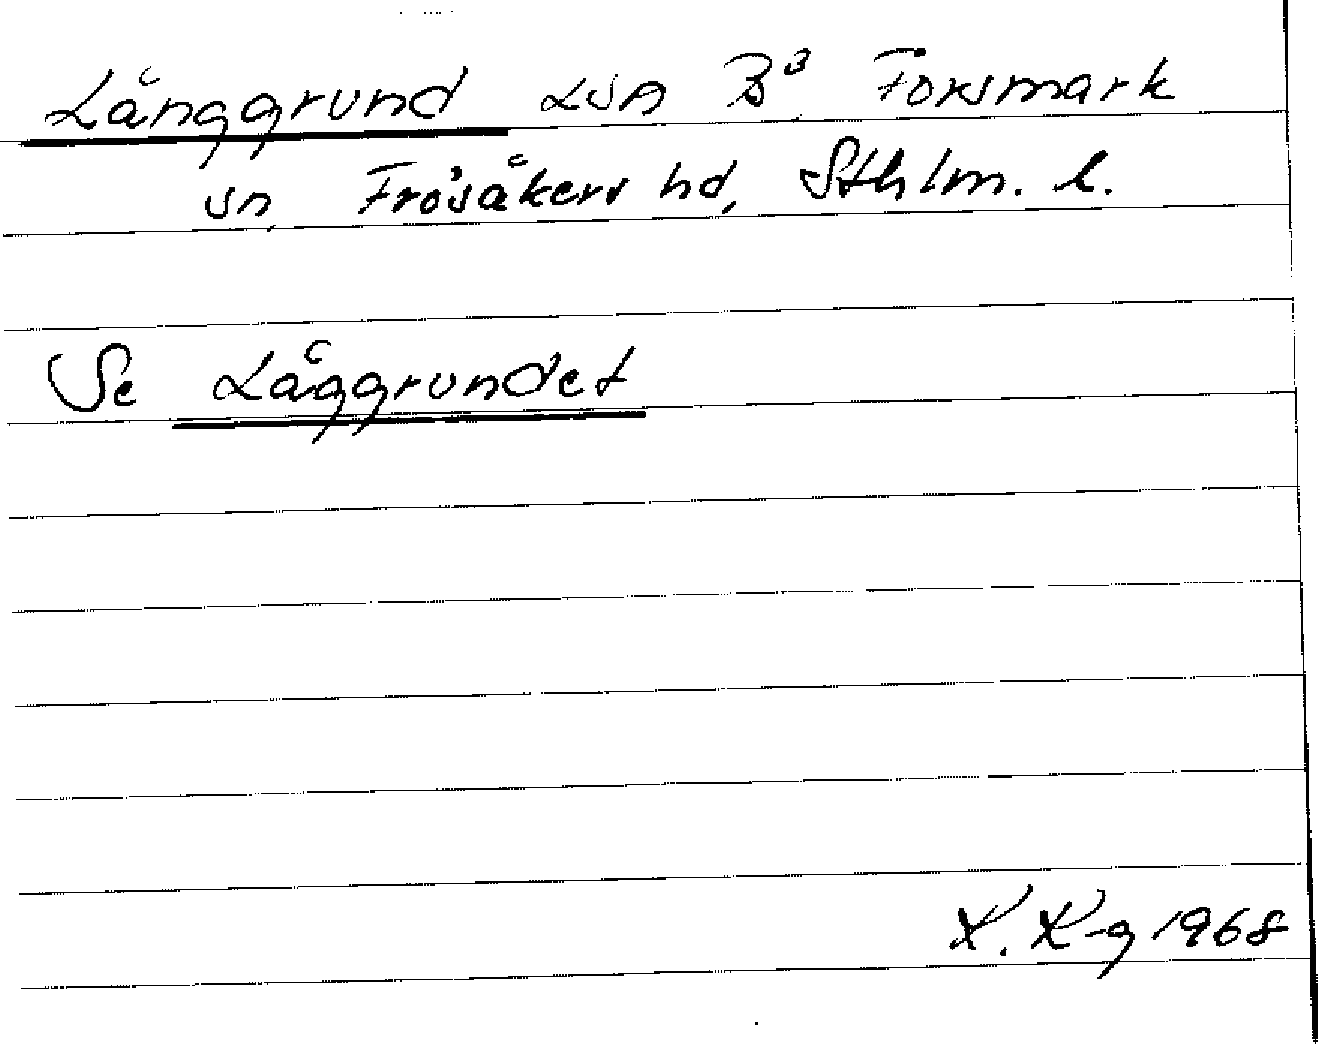 Långgrund LSA B³ Forsmark
sn, Frösåkers hd, Sthlm. l.
Se Låggrundet
K. K-g 1968